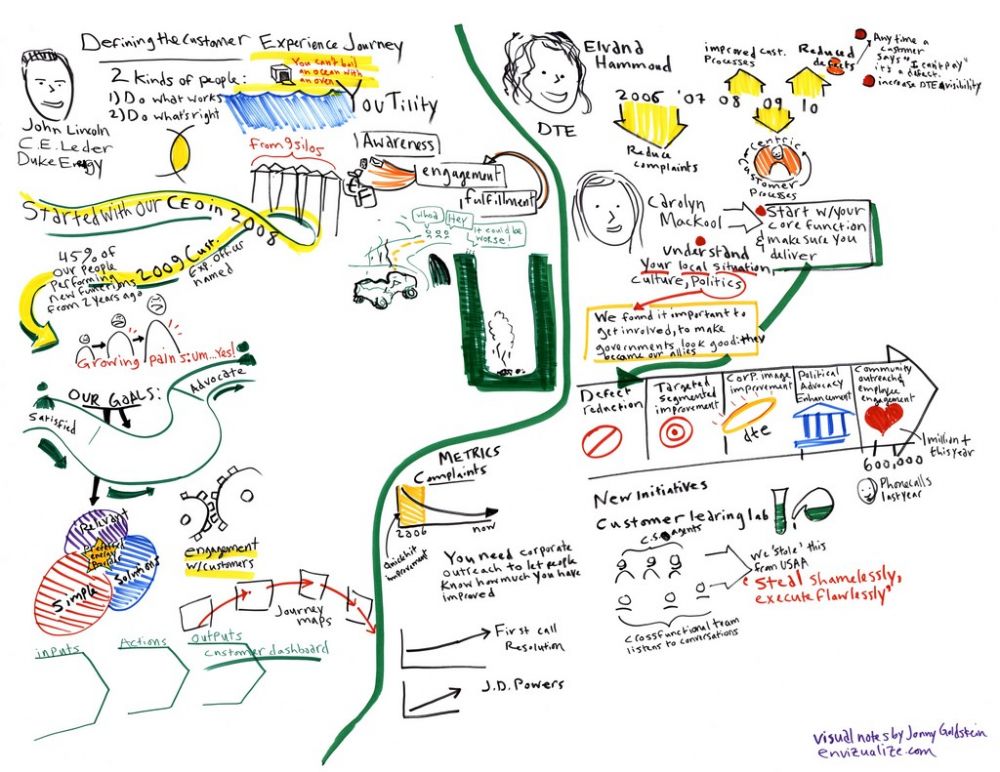 Defining the Customer Experience Journey
2 kinds of people:
1) Do what works
2) Do what's right
You can't boil
an ocean with
an oven
YouTility
John Lincoln
C.E. Leder
Duke Energy
From 9 silos
Awareness
engagement
fulfillment
Started with our CEO in 2008
2009 Cust.
Exp. Officer
named
45% of
our people
performing
new functions
from 2 years ago
whoa
Hey
it could be
worse!
Growing pain s ium...Yes!
OUR GOALS:
Satisfied
Advocate
Relevant
Preferred
energy
Provider
Simple
Solutions
engagement
w/customers
Journey
maps
inputs
Actions
outputs
customer dashboard
Elvana
Hammond
DTE
2006 '07 08 09 10
Reduce
complaints
improved cust.
Processes
Reduced
defects
Any time a
customer
says "I can't pay"
it's a defect.
increase DTE visibility
centric
customer
Processes
Carolyn
Mackool
Start w/your
core function
& make sure you
deliver
understand
your local situation,
culture, Politics
We found it important to
get involved, to make
governments look good: they
became our allies
Defect
reduction
Targeted
Segmented
improvement
Corp. image
improvement
dte
Political
Advocacy
Enhancement
Community
outreach &
employee
engagement
1 million +
this year
600,000
Phone calls
last year
METRICS
Complaints
2006
now
Quick hit
improvement
You need corporate
outreach to let people
know how much you have
improved
First call
Resolution
J.D. Powers
New Initiatives
Customer learing lab
C.S. agents
We 'stole' this
from USAA
"Steal shamelessly,
execute flawlessly"
crossfunctional team
listens to conversations
visual notes by Jonny Goldstein
envizualize.com